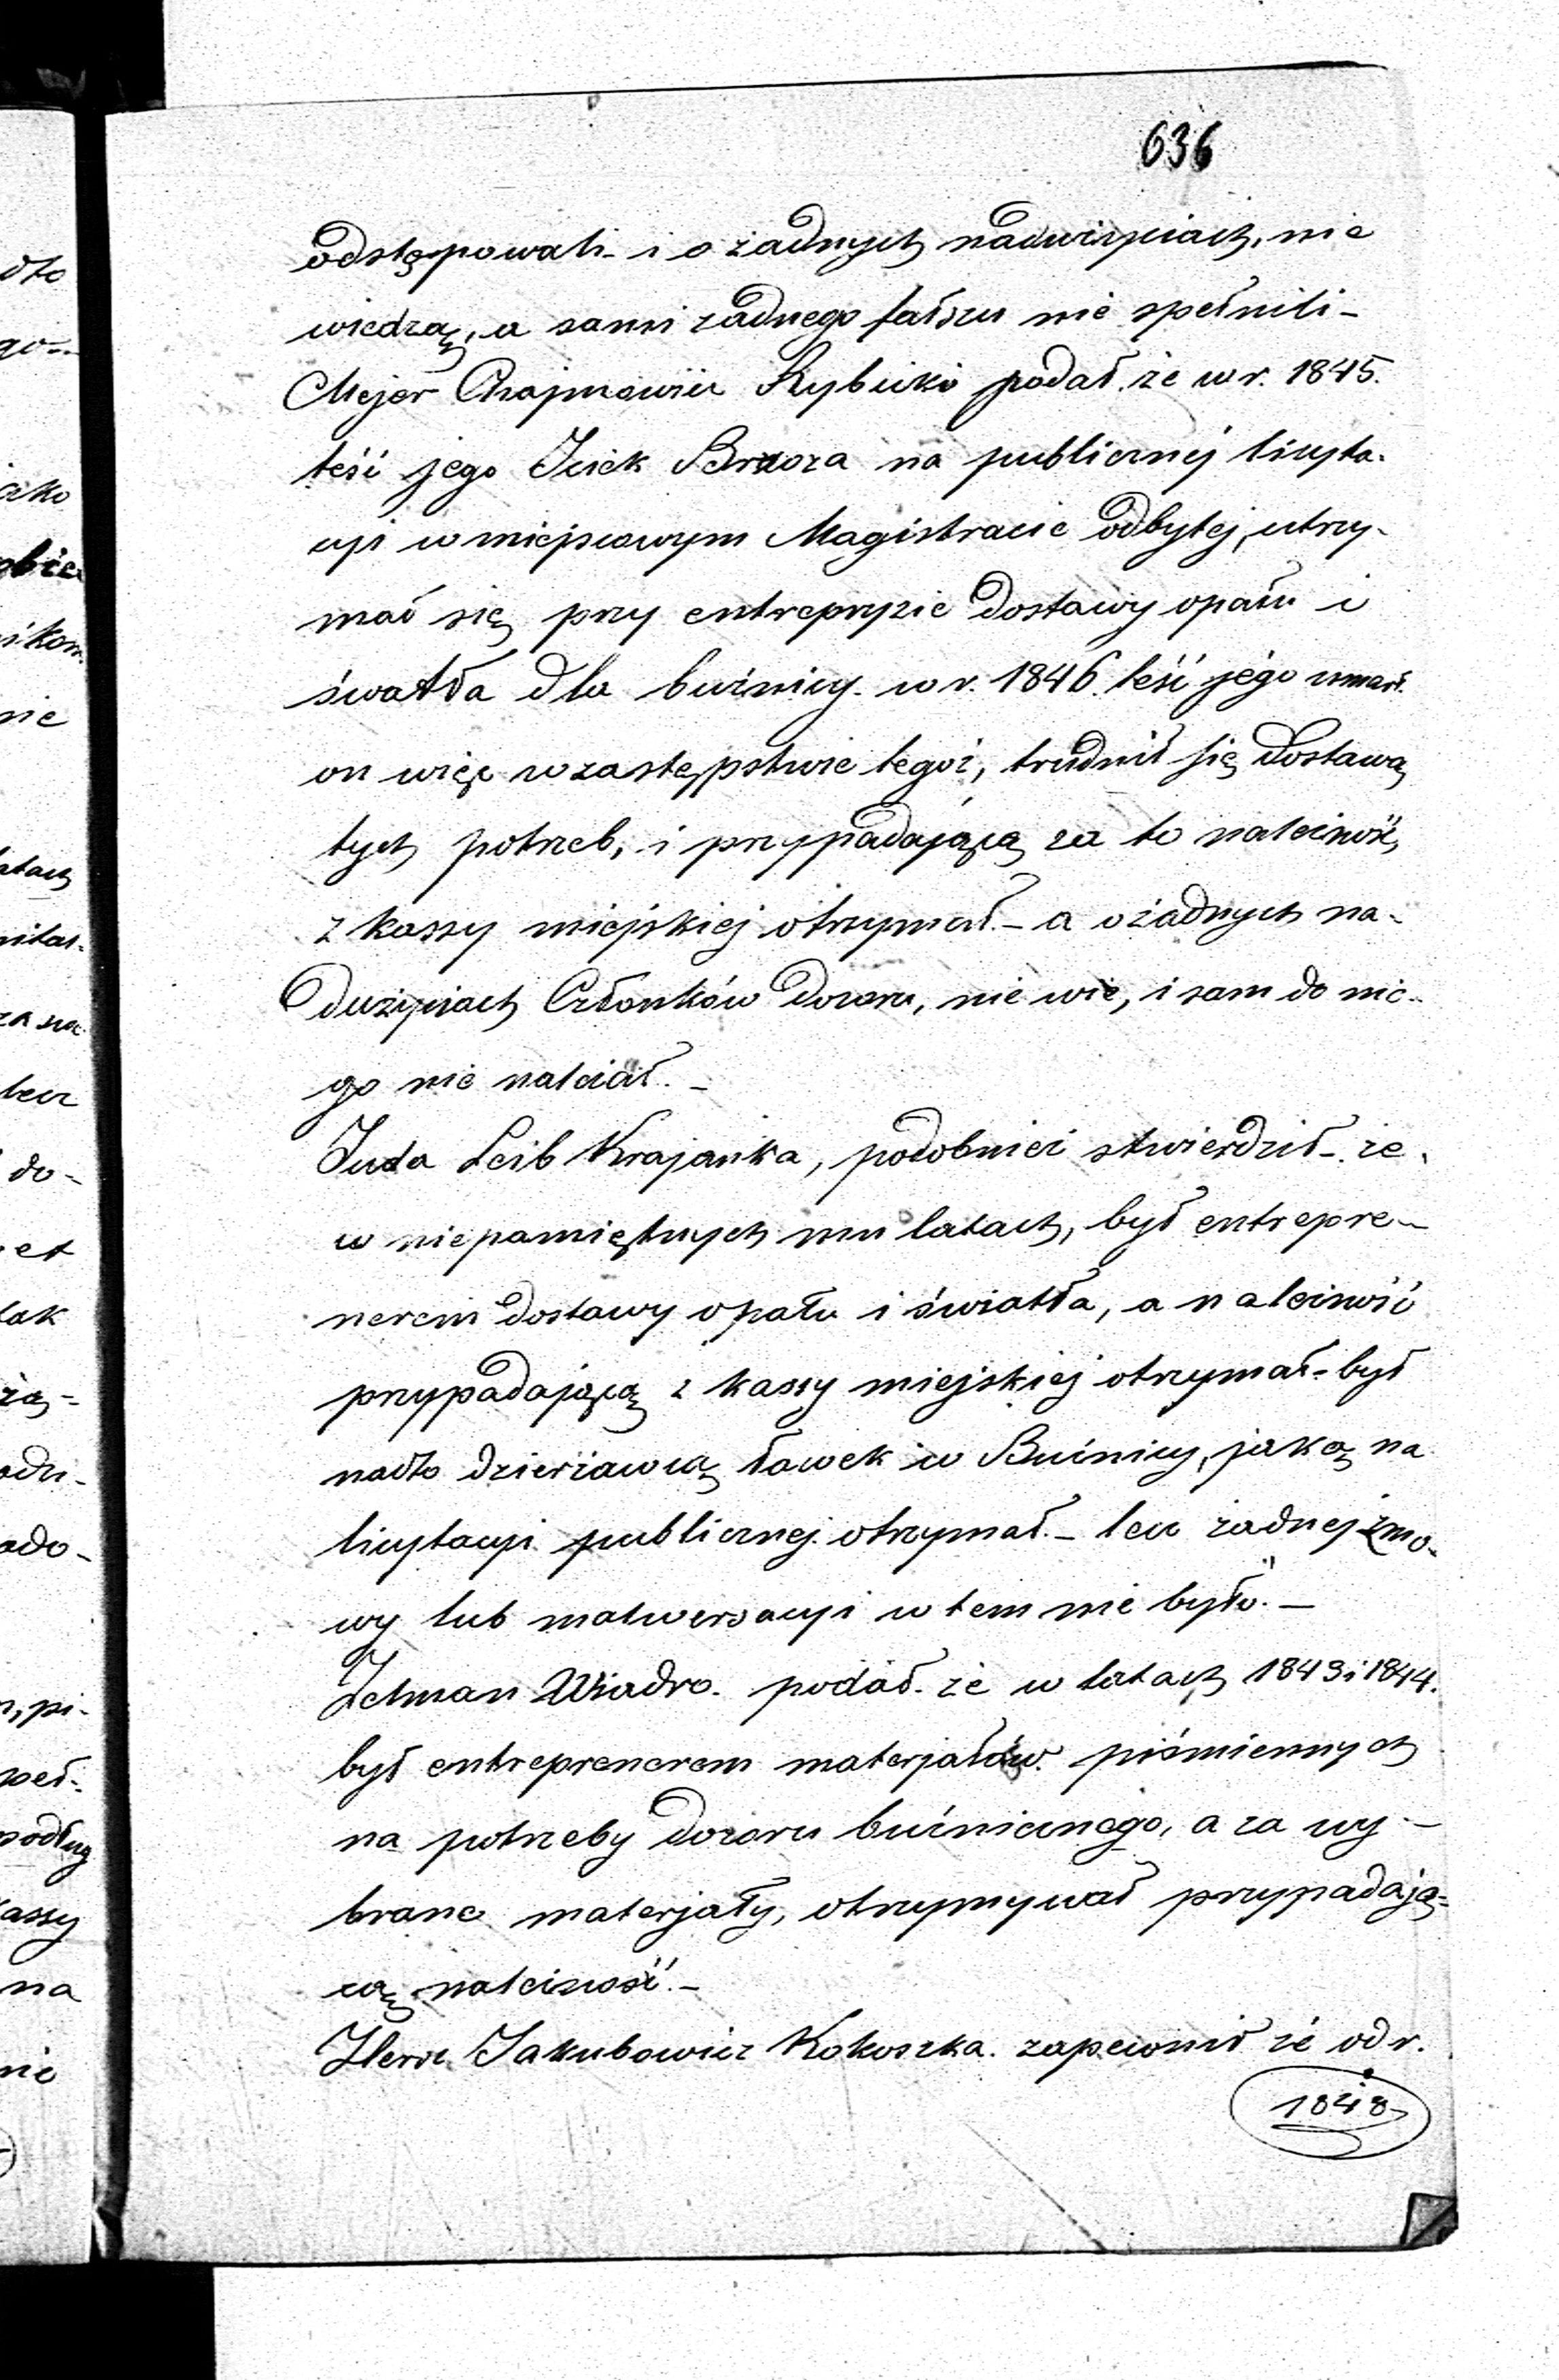 636
odstępowali – i o żadnych nadużyciach, nie
wiedzą, a sami żadnego fałszu nie spełnili –
Mejer Chajmowicz Rybicki podał, że w r. 1845.
teść jego Icek Brzoza na publicznéj licyta-
cyi w miejscowym Magistracie odbytej, utrzy-
mał się przy entrepryzie dostawy opału i
śwatła dla buźnicy. w r. 1846. teść jego umarł.
on więc w zastępstwie tegoż, trudnił się dostawą
tych potrzeb, i przypadającą za to należność,
z kassy miejskiej otrzymał. – a o żadnych na-
dużyciach Członków dozoru, nie wie, i sam do nic-
go nie należał. –
Juda Leib Krajanka, podobnież stwierdził – że
w niepamiętnych mu latach, był entrepre-
nerem dostawy opału i światła, a należność
przypadającą z kassy miejskiej otrzymał – był
nadto dzierżawcą ławek w Buźnicy, jaką na
licytacyi publicznej otrzymał. – lecz żadnej zmo-
wy lub malwersacyi w tem nie było. –
Zelman Wiadro. podał. że w latach 1843 i 1844.
był entreprenerem materjałów piśmiennych
na potrzeby dozoru buźnicznego, a za wy-
brane materjały, otrzymywał przypadają-
cą należność. –
Jakubowicz Kokoszka. zapewnił że od r.
1848
dto
go –
nie
latach
do –
tak
pi-
podług
kassy
na
nie